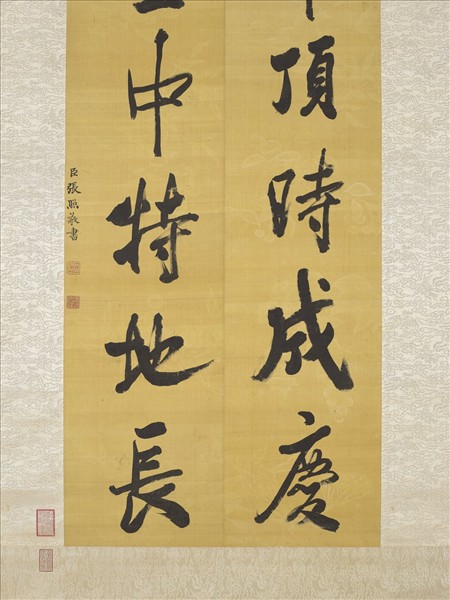 頂時成慶
中特地長
臣張照敬書